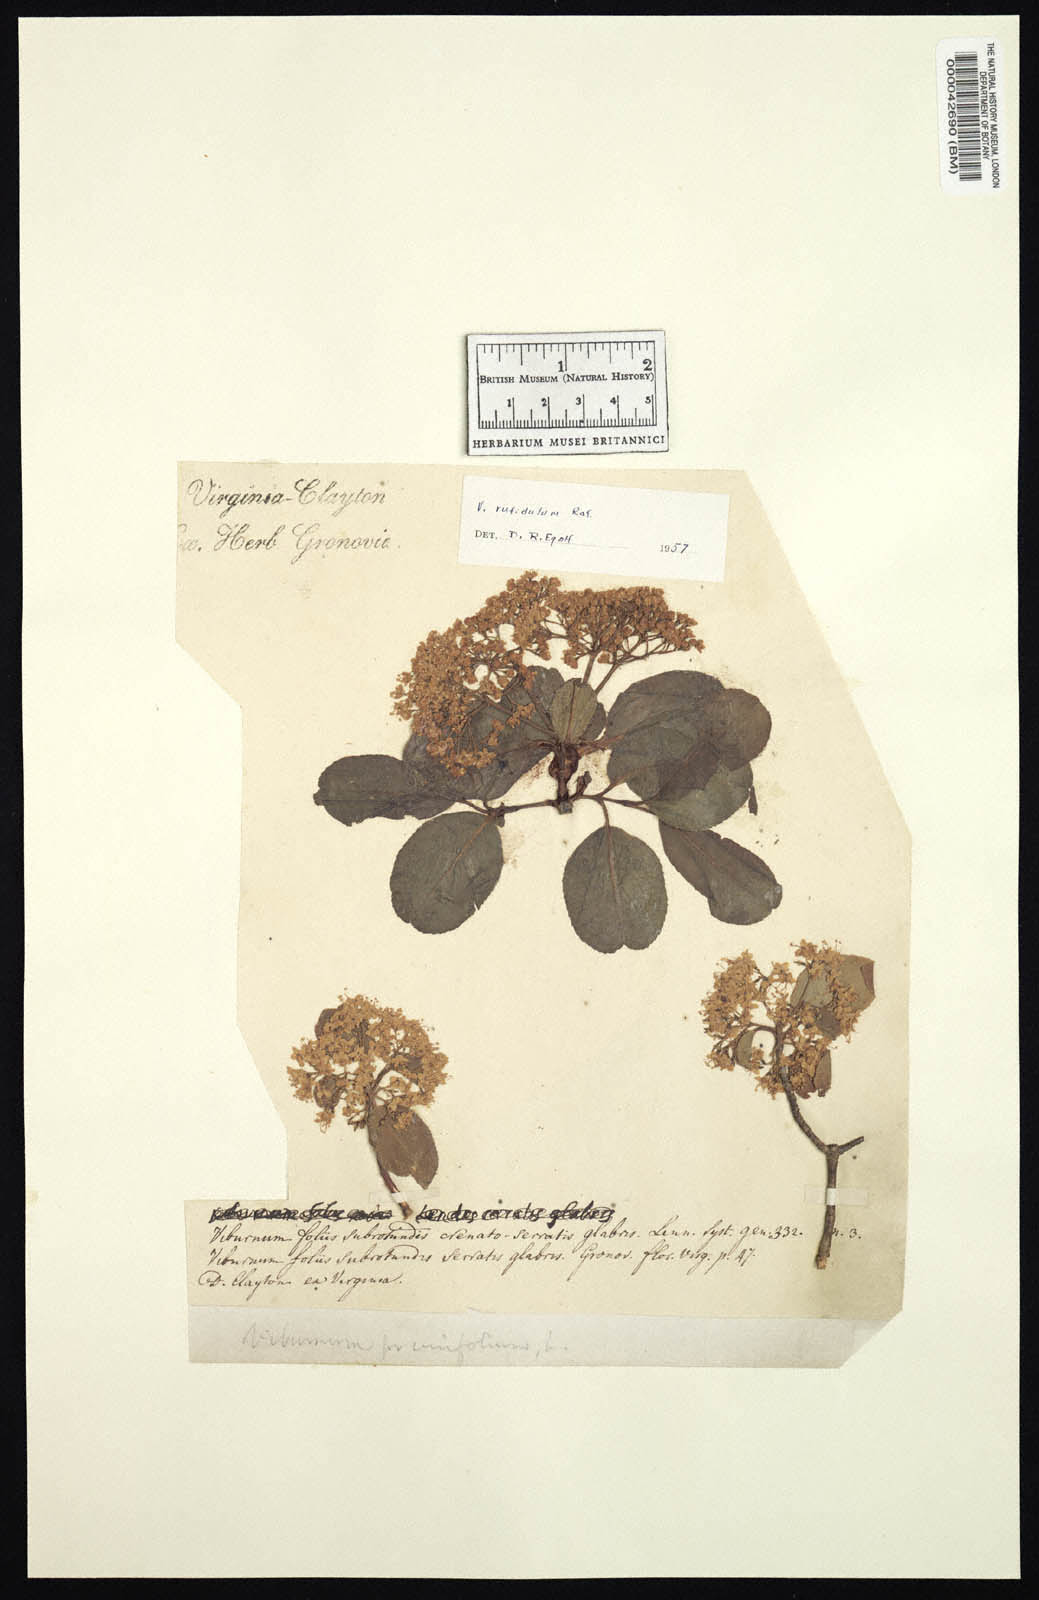 THE NATURAL HISTORY MUSEUM, LONDON
DEPARTMENT OF BOTANY
000042690 (BM)
1 2
BRITISH MUSEUM (NATURAL HISTORY)
1 2 3 4 5
HERBARIUM MUSEI BRITANNICI
Virginia-Clayton
Herb. Gronovii.
V. rufidulum Raf.
DET. D. R. Egolf 1957
Viburnum foliis subrotundis crenato-serratis glabris. Linn. syst. gen. 332. n. 3.
Viburnum foliis subrotundis serratis glabris. Gronov. flor. Virg. p. 47.
D. Clayton ex Virginia.
Viburnum prunifolium, L.